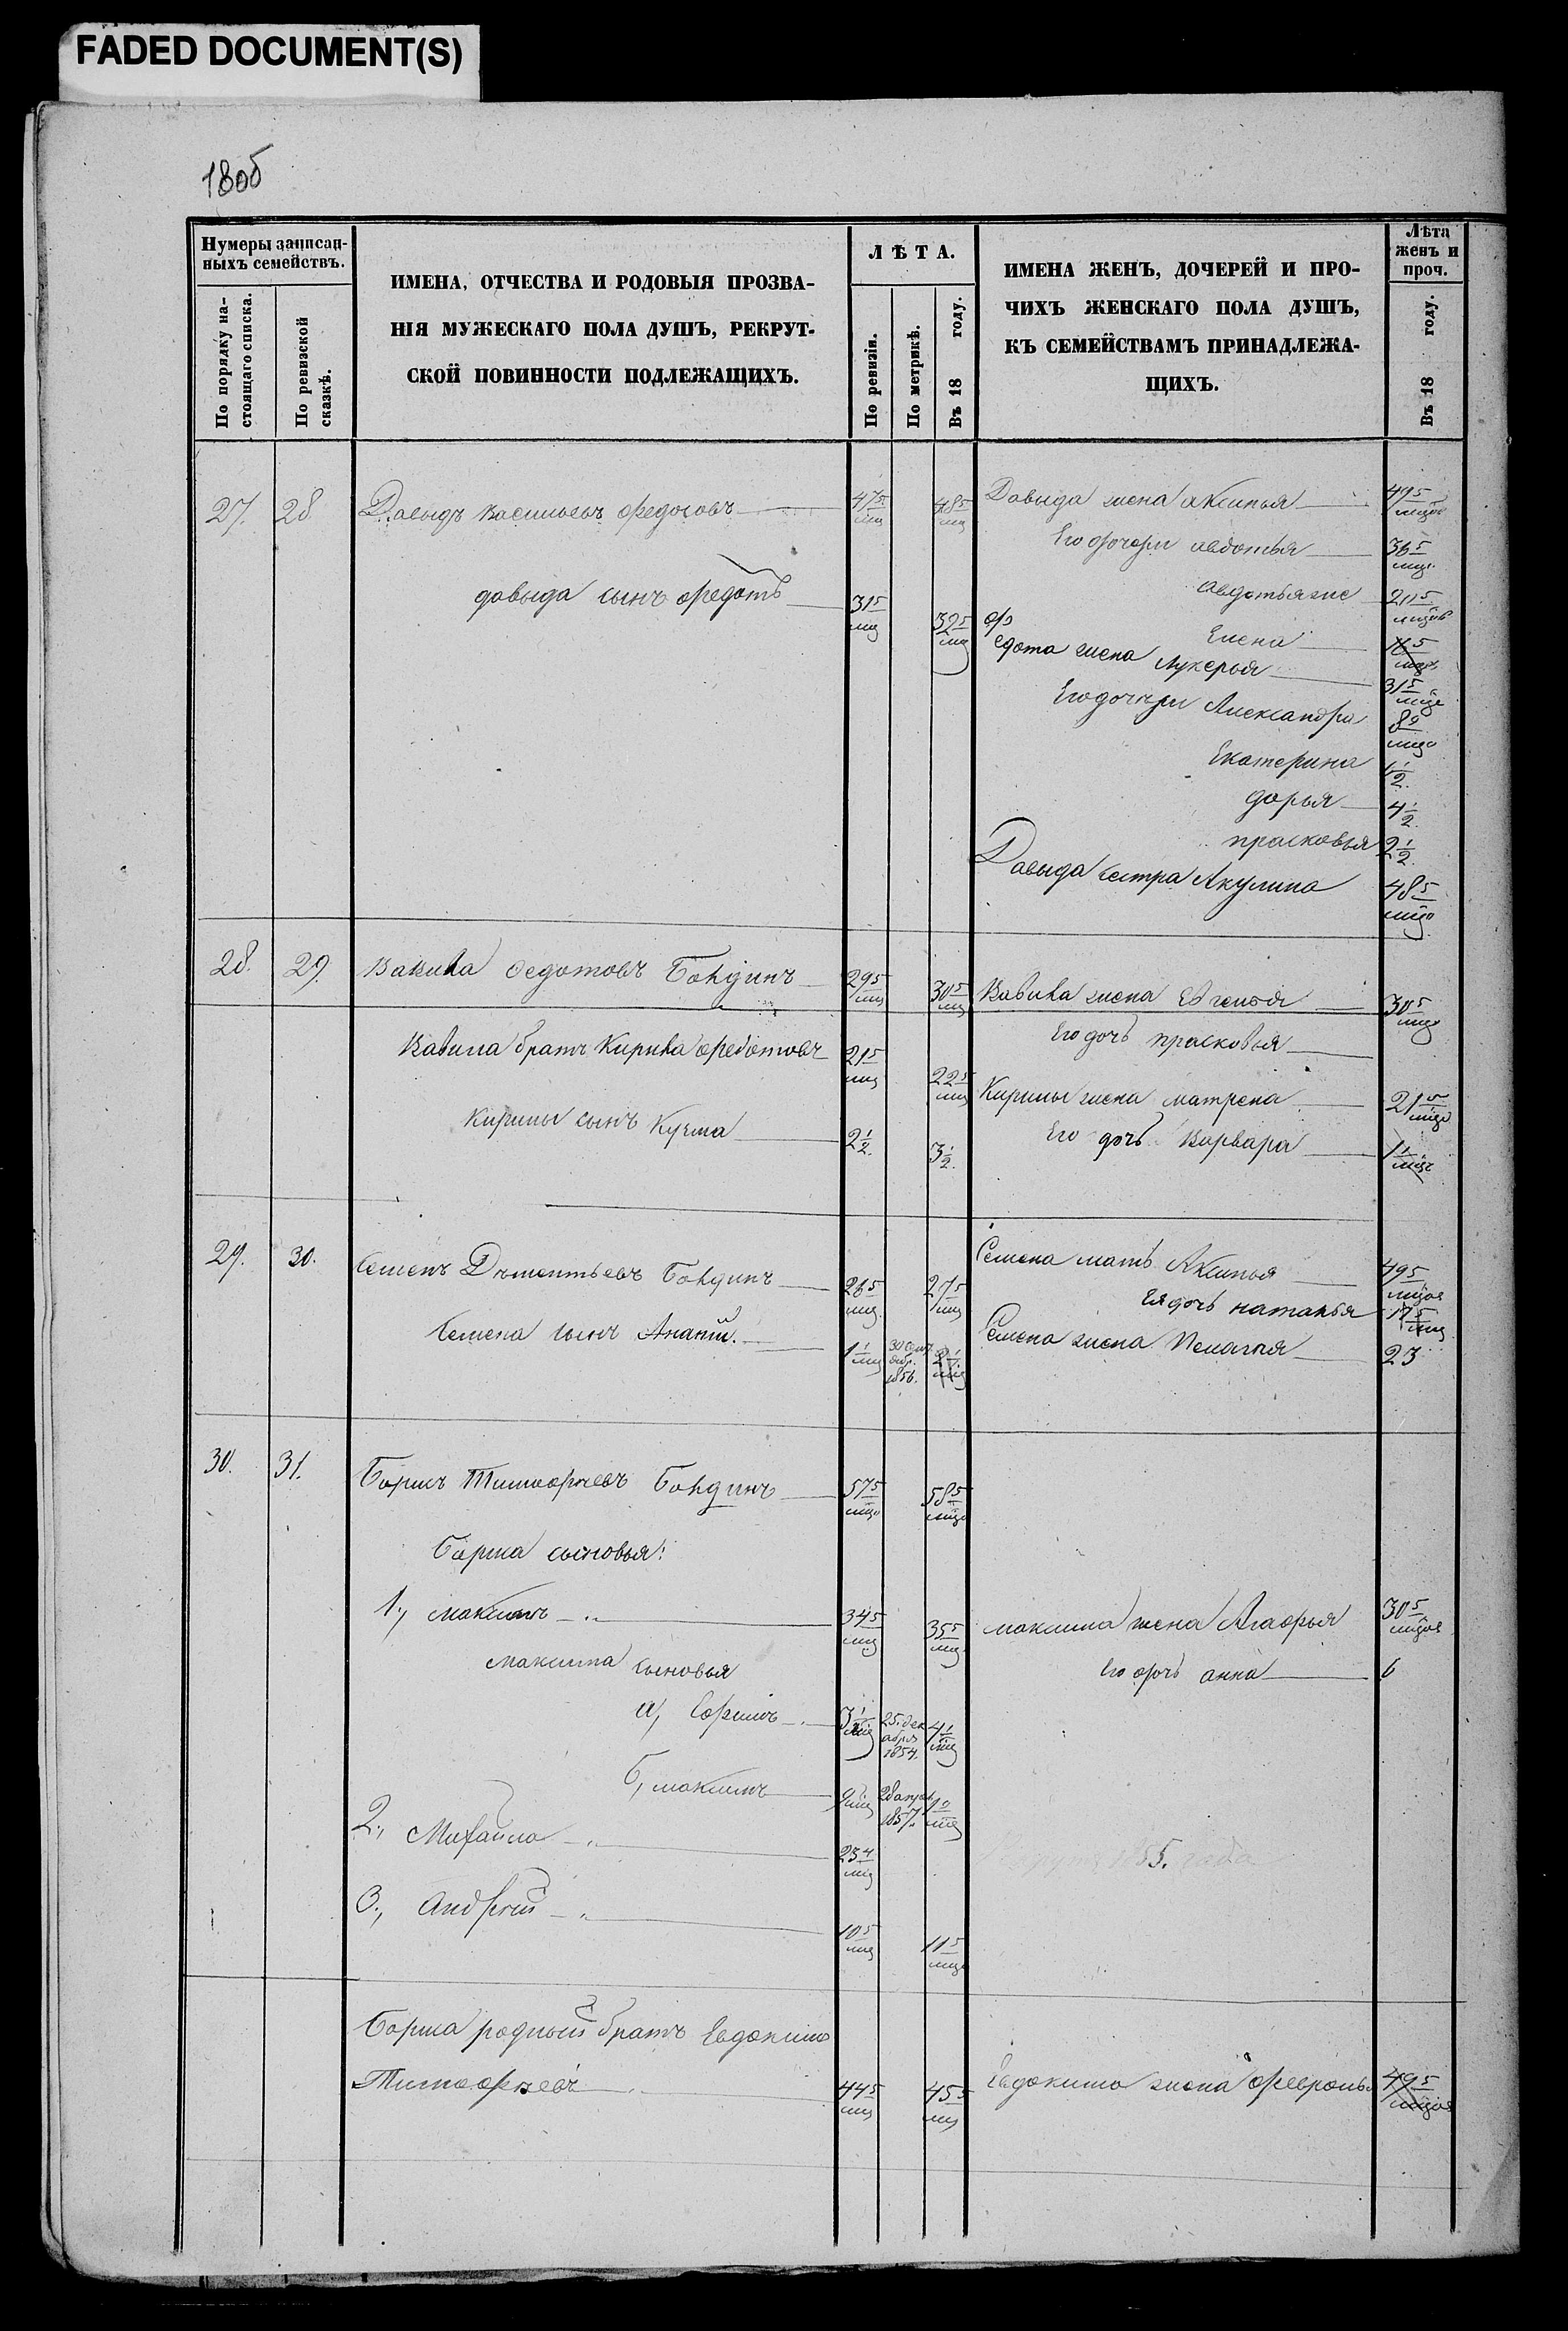 FADED DOCUMENT(S)
180об
Нумеры записан-
ныхъ семействъ.
По порядку на-
стоящаго списка.
По ревизской
сказкѣ.
ИМЕНА, ОТЧЕСТВА И РОДОВЫЯ ПРОЗВА-
НІЯ МУЖЕСКАГО ПОЛА ДУШЪ, РЕКРУТ-
СКОЙ ПОВИННОСТИ ПОДЛЕЖАЩИХЪ.
ЛѢТА.
По ревизіи.
По метрикѣ.
Въ 18 году.
ИМЕНА ЖЕНЪ, ДОЧЕРЕЙ И ПРО-
ЧИХЪ ЖЕНСКАГО ПОЛА ДУШЪ,
КЪ СЕМЕЙСТВАМЪ ПРИНАДЛЕЖА-
ЩИХЪ.
Лѣта
женъ и
проч.
Въ 18 году.
27. 28 Давыдъ Васильевъ Федосовъ 47 5 48 5 Давыда жена Аксинья 49 5
Его дочери авдотья 36 5
давыда сынъ Федотъ 31 5 32 5 авдотьяже 20 5
Елена
Федота жена Лукерья 31 5
Его дочери Александра 8
Екатерина
дарья 4 1/2
прасковья 2 1/2
Давыда сестра Акулина 48 5
28. 29. Вавила Федотовъ 29 5 30 5 Вавила жена Евгенья 30 5
Его дочь прасковья
Вавила братъ Кирила Федотовъ 21 5 22 5
Кирилы жена матрена 21
Кирилы сынъ Кузма 2 1/2. 3 1/2. Его дочь Варвара 1
29. 30. Семенъ Дементьевъ 26 5 27 5 Семена мать Аксинья 49 5
Ея дочь наталья 17 5
Семена сынъ Ананій. 1 30 1856. 2 Семена жена Пелагья 23
30. 31. Борисъ Тимофѣевъ 57 5 58 5
Бориса сыновья:
1., максимъ 34 5 35 5 максима жена Агафья 30 5
максима сыновья Его дочь анна 6
а, Ефимъ 3 25 дек
абря
1854. 4
б, максимъ 28 апрѣл
1857.
2., Михайла 23 4 1855. года
3., Андрей 10 5 11 5
Бориса родный братъ Евдокимъ
Тимофѣевъ 44 5 45 5 Евдокима жена Февронья 49 5